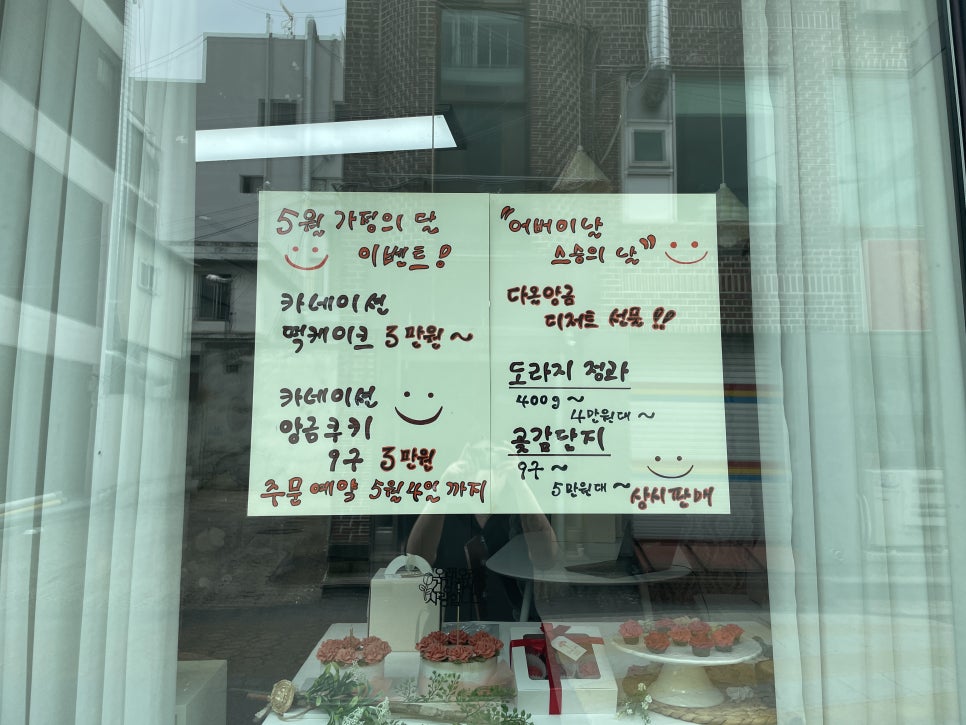 5월 가정의 달
이벤트!
카네이션
떡케이크 3만원~
카네이션
앙금쿠키
9구 3만원
주문예약 5월4일까지
"어버이날
스승의 날"
다온앙금
디저트 선물!!
도라지 정과
400g~
4만원대~
곶감단지
9구~
5만원대~
상시판매